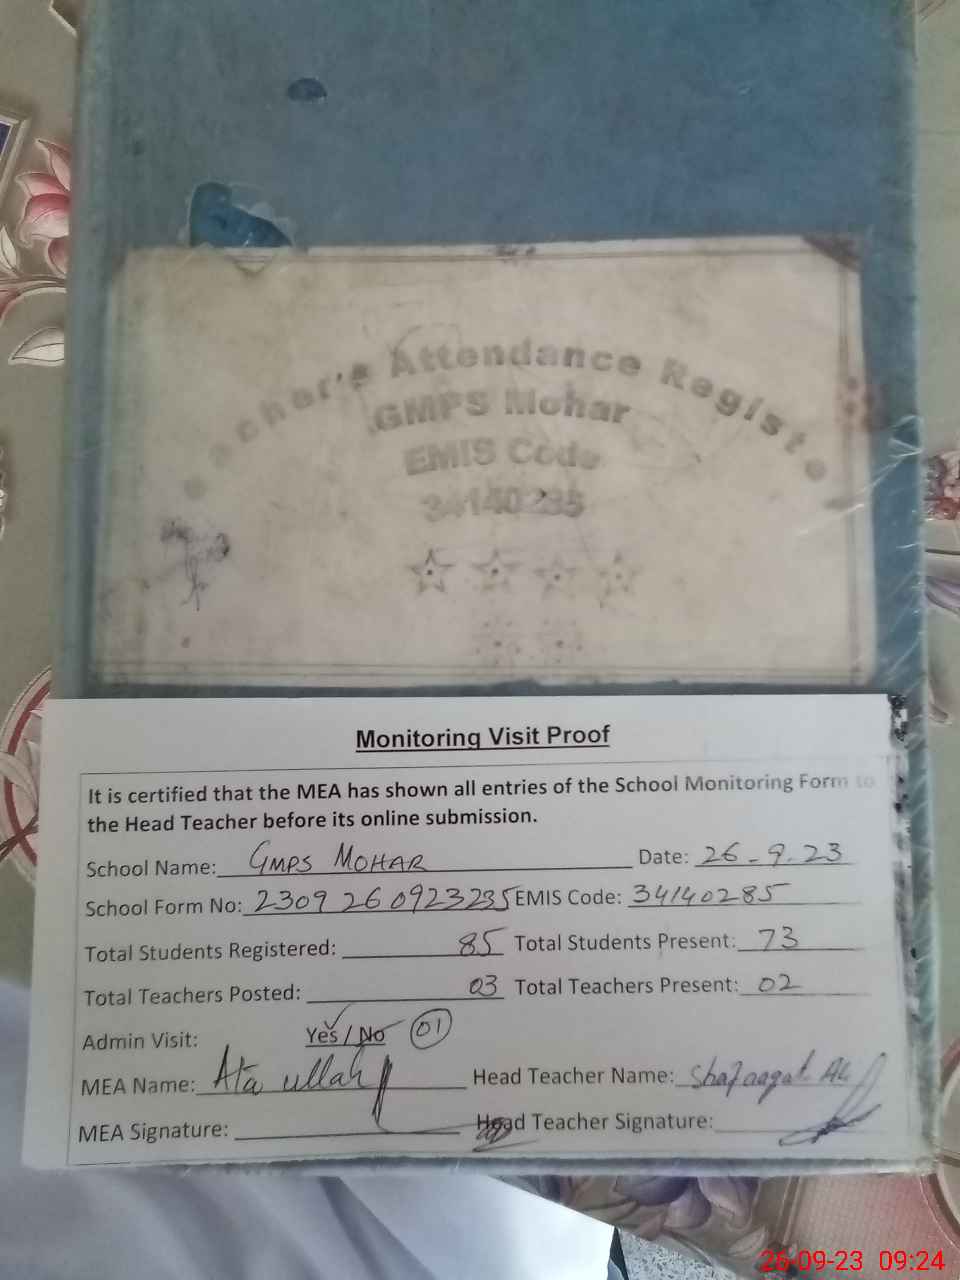 Teacher's Attendance Register
GMPS Mohar
EMIS Code
34140285
Monitoring Visit Proof
It is certified that the MEA has shown all entries of the School Monitoring Form to
the Head Teacher before its online submission.
School Name: GMPS MOHAR Date: 26-9-23
School Form No: 2309 26 0923235 EMIS Code: 34140285
Total Students Registered: 85 Total Students Present: 73
Total Teachers Posted: 03 Total Teachers Present: 02
Admin Visit: Yes / No 01
MEA Name: Ata ullah Head Teacher Name: Ali
MEA Signature: Head Teacher Signature:
26-09-23 09:24